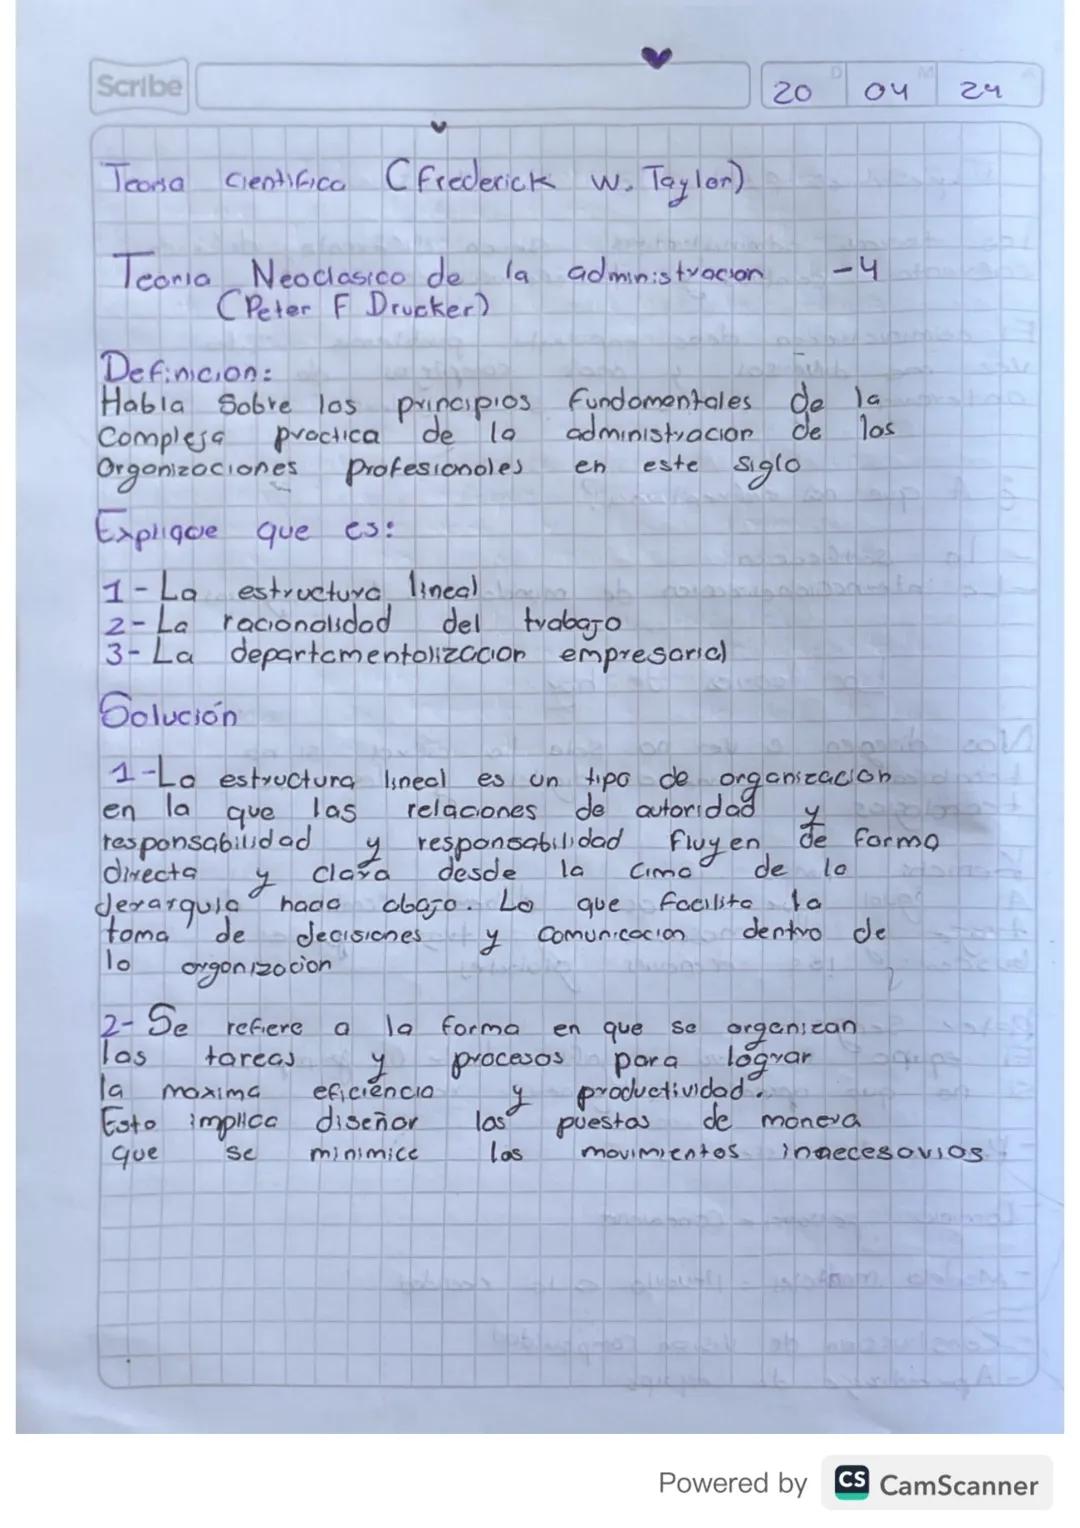 Scribe
D M A
20 04 24
Teoria Cientifica (Frederick W. Taylor)
Teoria Neoclasico de la administracion -4
(Peter F Drucker)
Definicion:
Habla sobre los principios fundamentales de la
Compleja practica de la administracion de las
Organizaciones profesionales en este siglo
Explique que es:
1- La estructura lineal
2- La racionalidad del trabajo
3- La departamentalizacion empresarial
Solución
1- La estructura lineal es un tipo de organizacion
en la que las relaciones de autoridad y
responsabilidad y responsabilidad fluyen de forma
directa y clara desde la cima de la
Jerarquia hada abajo. Lo que facilita la
toma de decisiones y comunicacion dentro de
la organizacion
2- Se refiere a la forma en que se organizan
las tareas y procesos para lograr
la maxima eficiencia y productividad.
Esto implica diseñar los puestos de manera
que se minimice los movimientos innecesarios.
Powered by CS CamScanner